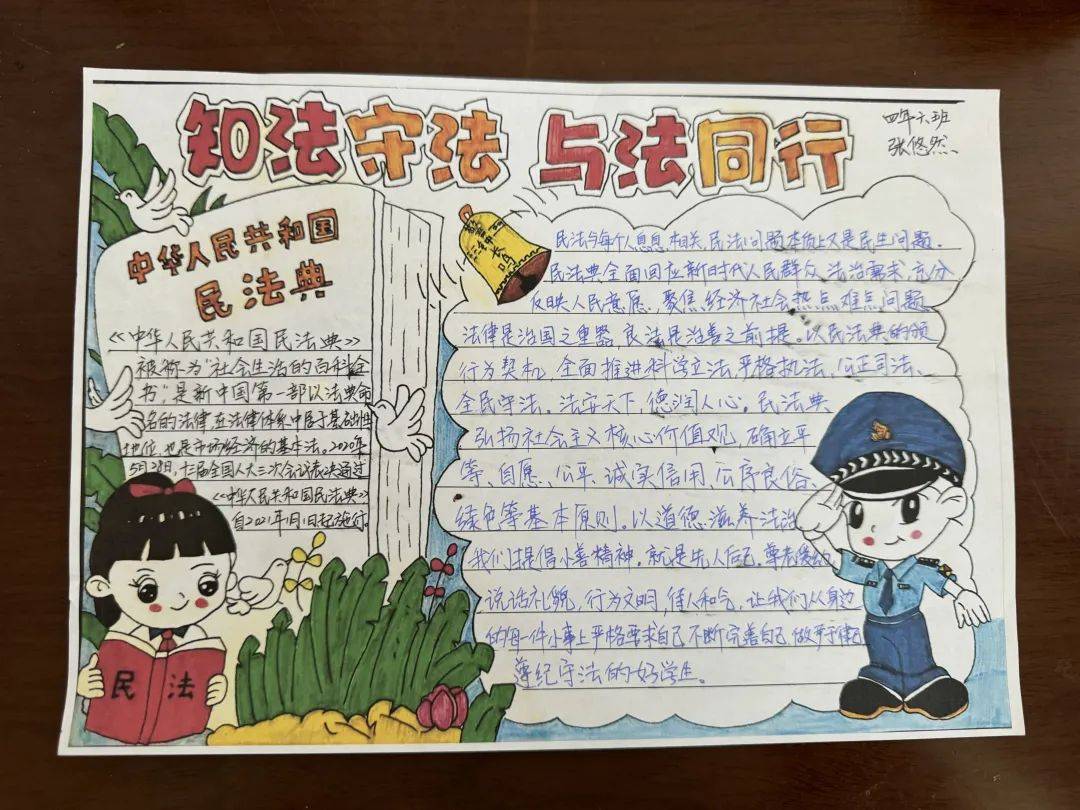 知法守法 与法同行
四年六班
张悠然
中华人民共和国
民法典
《中华人民共和国民法典》
被称为“社会生活的百科全
书”,是新中国第一部以法典命
名的法律,在法律体系中居于基础性
地位,也是市场经济的基本法。2020年
5月28日,十三届全国人大三次会议表决通过
《中华人民共和国民法典》
自2021年1月1日起施行。
警钟长鸣
民法与每个人息息相关,民法问题本质上又是民生问题。
民法典全面回应新时代人民群众法治需求,充分
反映人民意愿、聚焦经济社会热点难点问题
法律是治国之重器,良法是治善之前提。以民法典的颁
行为契机,全面推进科学立法、严格执法、公正司法、
全民守法。法安天下,德润人心。民法典
弘扬社会主义核心价值观,确立平
等、自愿、公平、诚实信用、公序良俗、
绿色等基本原则。以道德滋养法治
我们提倡小善精神。就是先人后己,尊老爱幼
说话礼貌,行为文明,待人和气,让我们从身边
的每一件小事上严格要求自己,不断完善自己,做
遵纪守法的好学生。
民 法